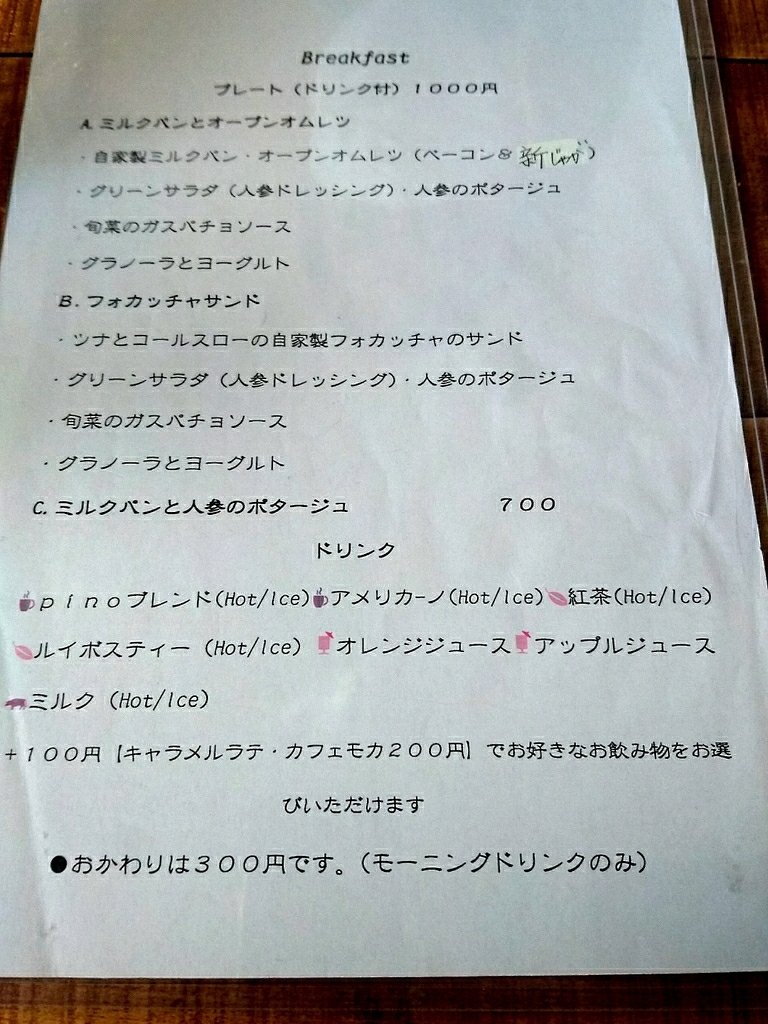 Breakfast
プレート（ドリンク付）１０００円
A.ミルクパンとオープンオムレツ
・自家製ミルクパン・オープンオムレツ（ベーコン＆新じゃが）
・グリーンサラダ（人参ドレッシング）・人参のポタージュ
・旬菜のガスパチョソース
・グラノーラとヨーグルト
B.フォカッチャサンド
・ツナとコールスローの自家製フォカッチャのサンド
・グリーンサラダ（人参ドレッシング）・人参のポタージュ
・旬菜のガスパチョソース
・グラノーラとヨーグルト
C.ミルクパンと人参のポタージュ　７００
ドリンク
ｐｉｎｏブレンド(Hot/Ice)アメリカ－ノ(Hot/Ice)紅茶(Hot/Ice)
ルイボスティー (Hot/Ice) オレンジジュースアップルジュース
ミルク (Hot/Ice)
＋１００円【キャラメルラテ・カフェモカ２００円】でお好きなお飲み物をお選
びいただけます
●おかわりは３００円です。（モーニングドリンクのみ）